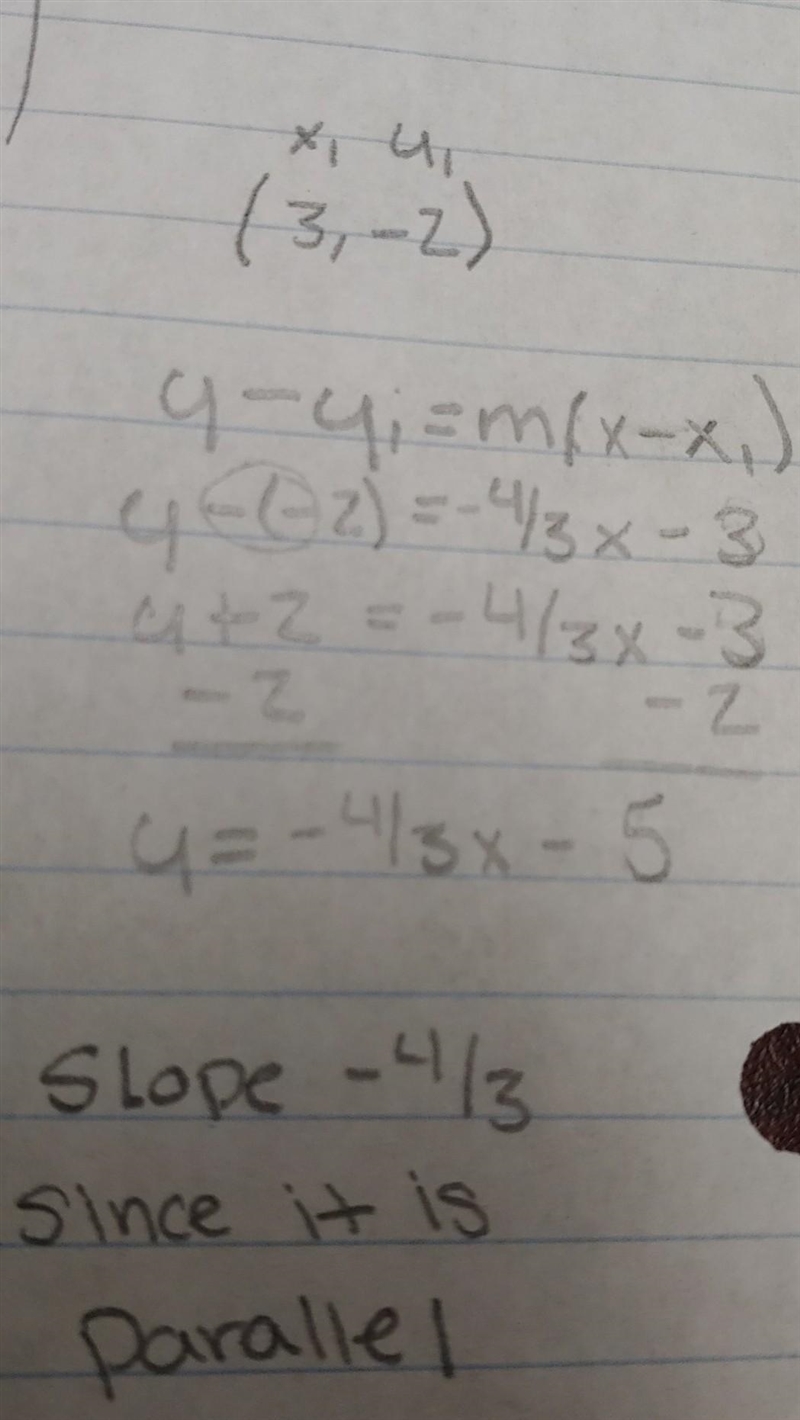 x₁ y₁
(3, -2)
y - y₁ = m(x - x₁)
y - (-2) = -4/3x - 3
y + 2 = -4/3x - 3
- 2 - 2
y = -4/3x - 5
Slope -4/3
Since it is
parallel